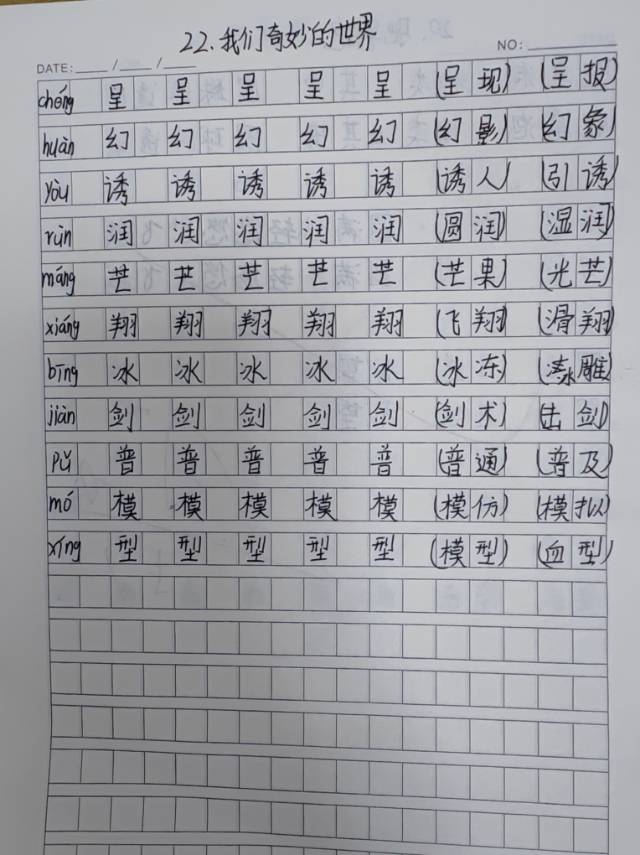 22.我们奇妙的世界
DATE: / / NO:
chéng 呈 呈 呈 呈 呈 (呈现) (呈报)
huàn 幻 幻 幻 幻 幻 (幻影) (幻象)
yòu 诱 诱 诱 诱 诱 (诱人) (引诱)
rùn 润 润 润 润 润 (圆润) (湿润)
máng 芒 芒 芒 芒 芒 (芒果) (光芒)
xiáng 翔 翔 翔 翔 翔 (飞翔) (滑翔)
bīng 冰 冰 冰 冰 冰 (冰冻) (冰雕)
jiàn 剑 剑 剑 剑 剑 (剑术) (击剑)
pǔ 普 普 普 普 普 (普通) (普及)
mó 模 模 模 模 模 (模仿) (模拟)
xíng 型 型 型 型 型 (模型) (血型)